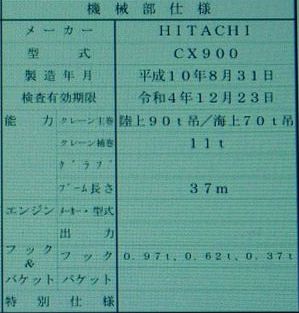 機械部仕様
メーカー HITACHI
型式 CX900
製造年月 平成10年8月31日
検査有効期限 令和4年12月23日
能力 クレーン主巻 陸上90t吊/海上70t吊
クレーン補巻 11t
グラブ
ブーム長さ 37m
エンジン メーカー・型式
出力
フック & バケット フック 0.97t、0.62t、0.37t
バケット
特別仕様